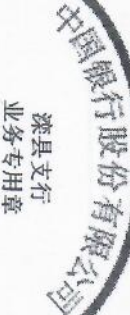 中国银行股份有限公司
滦县支行
业务专用章